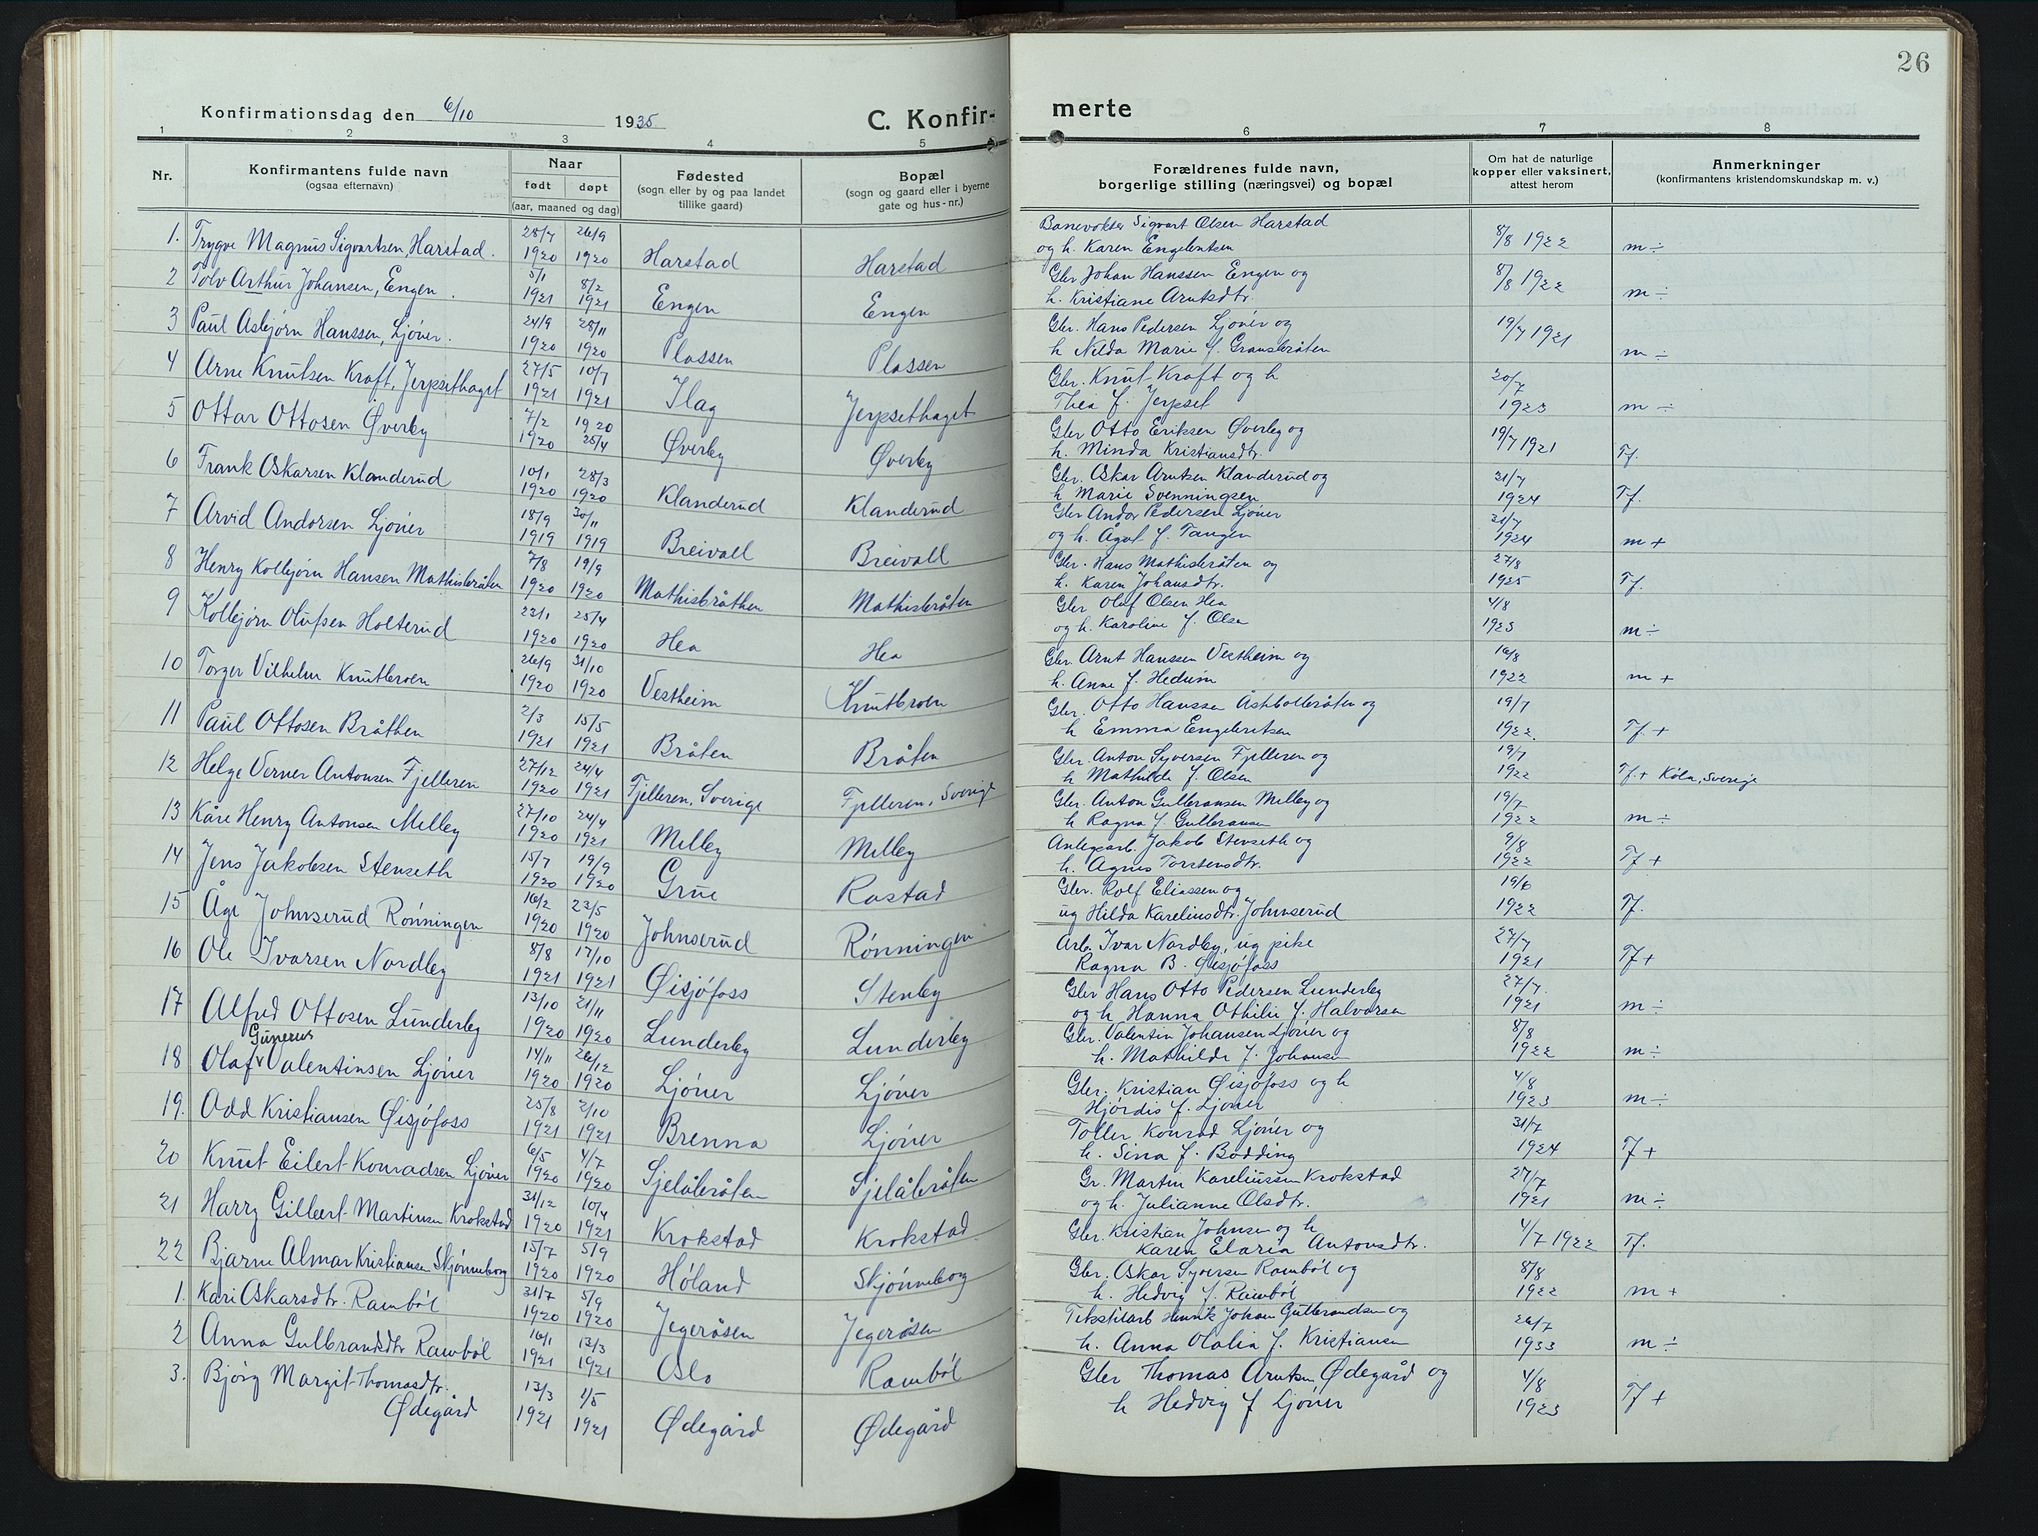 26
Konfirmationsdag den 6/10 1935
C. Konfir-
merte
1 2 3 4 5 6 7 8
Nr.
Konfirmantens fulde navn
(ogsaa efternavn)
Naar
født døpt
(aar, maaned og dag)
Fødested
(sogn eller by og paa landet
tillike gaard)
Bopæl
(sogn og gaard eller i byerne
gate og hus-nr.)
Forældrenes fulde navn,
borgerlige stilling (næringsvei) og bopæl
Om hat de naturlige
kopper eller vaksinert,
attest herom
Anmerkninger
(konfirmantens kristendomskundskap m. v.)
1. Trygve Magnus Sigvartsen, Harstad. 28/7 1920 26/9 1920 Harstad Harstad
Banevokter Sigvart Olsen Harstad
og h. Karen Engelentsen 8/8 1922 m ÷
2 Tolv Arthur Johansen, Engen. 5/1 1921 8/2 1921 Engen Engen
Gbr Johan Hanssen Engen og
h. Kristiane Arntsdtr. 8/8 1922 m ÷
3 Paul Asbjørn Hanssen, Ljøner. 24/9 1920 28/11 1920 Plassen Plassen
Gbr. Hans Pedersen Ljøner og
h Nilda Marie f. Gransbråten 19/7 1921 m ÷
4 Arne Knutsen Kraft, Jerpsethaget 27/5 1921 10/7 1921 Ilag Jerpsethaget
Gbr. Knut Kraft og h
Thea f. Jerpset 20/7 1923 m ÷
5 Ottar Ottosen Øverby 7/2 1920 1920 25/4 Øverby Øverby
Gbr Otto Eriksen Øverby og
h. Minda Kristiansdtr. 19/7 1921 Tf.
6 Frank Oskarsen Klanderud 10/1 1920 28/3 1920 Klanderud Klanderud
Gbr. Oskar Arntsen Klanderud og
h Marie Svenningsen 31/7 1924 Tf.
7 Arvid Andorsen Ljøner 18/9 1919 30/11 1919 Breivoll Breivoll
Gbr Andor Pedersen Ljöner
og h. Ågot f. Tangen 31/7 1924 m +
8 Henry Kolbjørn Hansen Mathisbråten 7/8 1920 19/9 1920 Mathisbråthen Mathisbråten
Gbr. Hans Mathisbråten og
h. Karen Johansdtr. 27/8 1925 Tf.
9 Kolbjørn Olufsen Holterud 22/1 1920 25/4 1920 Hea Hea
Gbr Oluf Olsen Hea
og h. Karoline f. Olsen 4/8 1923 m ÷
10 Torger Vilhelm Knutbroen 26/9 1920 31/10 1920 Vestheim Knutbroen
Gbr. Arnt Hanssen Vestheim og
h. Anne f. Hedum 16/8 1922 m +
11 Paul Ottosen Bråthen 2/3 1921 15/5 1921 Bråten Bråten
Gbr. Otto Hanssen Åshbollbråten og
h Emma Engebretsen 19/7 1922. Tf. +
12 Helge Verner Antonsen Fjelleren 27/12 1920 24/4 1921 Fjelleren, Sverige Fjelleren, Sverige
Gbr. Anton Syversen Fjelleren og
h Mathilde f. Olsen 19/7 1922 Tf. + Köla, Sverige
13 Kåre Henry Antonsen Melby 27/10 1920 24/4 1921 Melby Melby
Gbr. Anton Gulbransen Melby og
h Ragna f. Gulbransen 19/7 1922 m ÷
14 Jens Jakobsen Stenseth 15/7 1920 19/9 1920 Grue Rastad
Anlegsarb. Jakob Stenseth og
h. Agnes Torstensdtr. 9/8 1922 Tf +
15 Åge Johnserud Rønningen 16/2 1920 23/5 1920 Johnserud Rønningen
Gbr. Rolf Eliassen og
ug Hilda Kareliusdtr. Johnserud 19/6 1922 Tf.
16 Ole Ivarsen Nordby 8/8 1921 17/10 1921 Øisjøfoss Stenby
Arb. Ivar Nordby, ug pike
Ragna B. Øisjøfoss 27/7 1921 Tf +
17 Alfred Ottosen Lunderby 13/10 1920 21/11 1920 Lunderby Lunderby
Gbr Hans Otto Pedersen Lunderby
og h Hanna Othilie f. Halvorsen 27/7. 1921 m ÷
Gunerius
18 Olaf Valentinsen Ljøner 14/11 1920 26/12 1920 Ljøner Ljøner
Gbr. Valentin Johansen Ljöner og
h. Mathilde f. Johansen 8/8 1922 m ÷
19. Odd Kristiansen Øisjøfoss 25/8 1921 2/10 1921 Brenna Ljøner
Gbr. Kristian Øisjöfoss og h
Hjördis f. Ljöner 4/8 1923 m ÷
20 Knut Eilert Konradsen Ljöner 6/5 1920 4/7 1920 Sjelåbråten Sjelåbråten
Toller Konrad Ljöner og
h. Sina f. Bodding 31/7 1924 Tf +
21 Harry Gilbert Martinsen Krokstad 31/12 1920 10/4 1921 Krokstad Krokstad
Gr. Martin Kareliussen Krokstad
og h. Julianne Olsdtr. 27/7 1921 m ÷
22 Bjarne Almar Kristiansen Skjønneborg 15/7 1920 5/9 1920 Høland Skjønneborg
Gbr. Kristian Johnsen og h
Karen Elaria Antonsdtr. 4/7 1922 Tf.
1. Kari Oskarsdtr. Rambøl 31/7 1920 5/9 1920 Jegeråsen Jegeråsen
Gbr. Oskar Syversen Rambøl og
h. Hedvig f. Rambøl 8/8 1922 m +
2 Anna Gulbrandsdtr Rambøl 16/1 1921 13/3 1921 Oslo Rambøl
Tekstilarb Henrik Johan Gulbrandsen og
h. Anna Olalia f. Kristiansen 26/7 1933 m ÷
3. Bjørg Margit Thomasdtr. Ødegård 13/3 1921 1/5 1921 Ødegård Ødegård
Gbr Thomas Arntsen Ødegård og
h Hedvig f Ljöner 4/8 1923 Tf +